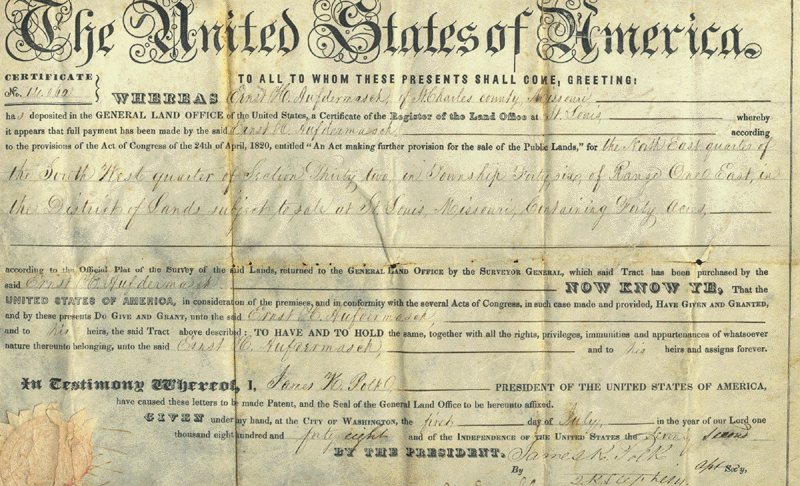 The United States of America.
CERTIFICATE
No. 14.862
TO ALL TO WHOM THESE PRESENTS SHALL COME, GREETING:
WHEREAS Ernst H. Aufdermasch, of St Charles county, Missouri
has deposited in the GENERAL LAND OFFICE of the United States, a Certificate of the Register of the Land Office at St. Louis whereby
it appears that full payment has been made by the said Ernst H. Aufdermasch according
to the provisions of the Act of Congress of the 24th of April, 1820, entitled "An Act making further provision for the sale of the Public Lands," for the North East quarter of
the South West quarter of Section Thirty two, in Township Forty six, of Range One East, in
the District of Lands subject to sale at St. Louis, Missouri, Containing Forty Acres,
according to the Official Plat of the Survey of the said Lands, returned to the GENERAL LAND OFFICE by the SURVEYOR GENERAL, which said Tract has been purchased by the
said Ernst H. Aufdermasch NOW KNOW YE, That the
UNITED STATES OF AMERICA, in consideration of the premises, and in conformity with the several Acts of Congress, in such case made and provided, HAVE GIVEN AND GRANTED,
and by these presents DO GIVE AND GRANT, unto the said Ernst H. Aufdermasch
and to his heirs, the said Tract above described: TO HAVE AND TO HOLD the same, together with all the rights, privileges, immunities and appurtenances of whatsoever
nature thereunto belonging, unto the said Ernst H. Aufdermasch, and to his heirs and assigns forever.
In Testimony Whereof, I, James K. Polk PRESIDENT OF THE UNITED STATES OF AMERICA,
have caused these letters to be made Patent, and the Seal of the General Land Office to be hereunto affixed.
GIVEN under my hand, at the CITY OF WASHINGTON, the first day of July, in the year of our Lord one
thousand eight hundred and forty eight and of the INDEPENDENCE OF THE UNITED STATES the Seventy second
BY THE PRESIDENT: James K. Polk
By J. K. Stephens Asst Sec'y.